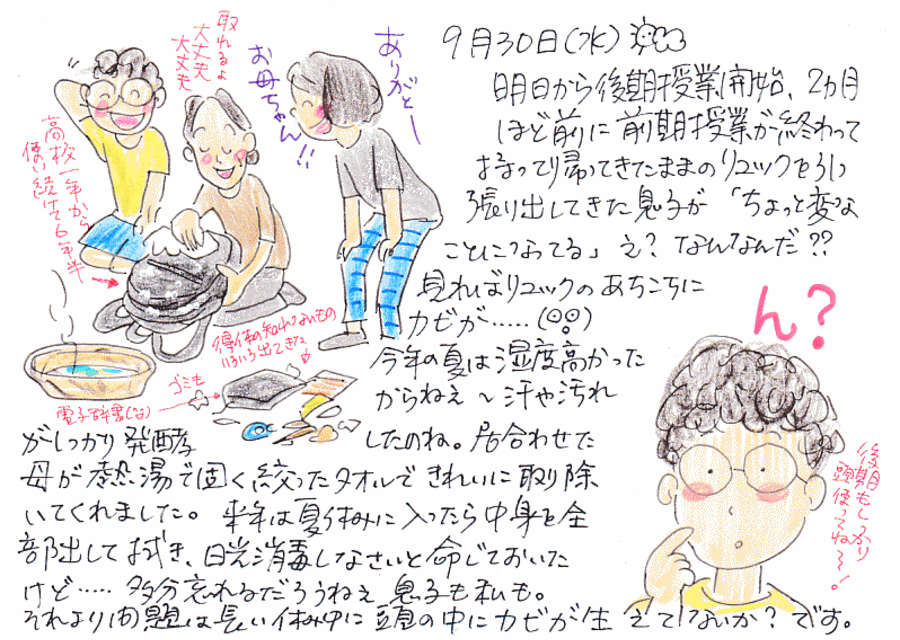 9月30日(水)
明日から後期授業開始、2ヵ月
ほど前に前期授業が終わって
帰ってきたままのリュックを引っ
張り出してきた息子が「ちょっと変な
ことになってる」え？なんなんだ??
見ればリュックのあちこちに
カビが……
今年の夏は湿度高かった
からねぇ～汗や汚れ
がしっかり発酵
したのね。居合わせた
母が熱湯で固く絞ったタオルできれいに取り除
いてくれました。来年は夏休みに入ったら中身を全
部出して拭き、日光消毒しなさいと命じておいた
けど……多分忘れるだろうねぇ息子も私も。
それより問題は長い休み中に頭の中にカビが生えてないか？です。
取れるよ
大丈夫
大丈夫
お母ちゃん!!
ありがとー
高校一年から
使い続けて6年半
得体の知れないもの
いろいろ出てきた
ゴミも
電子辞書
ん？
後期もしっかり
頭使ってね～!